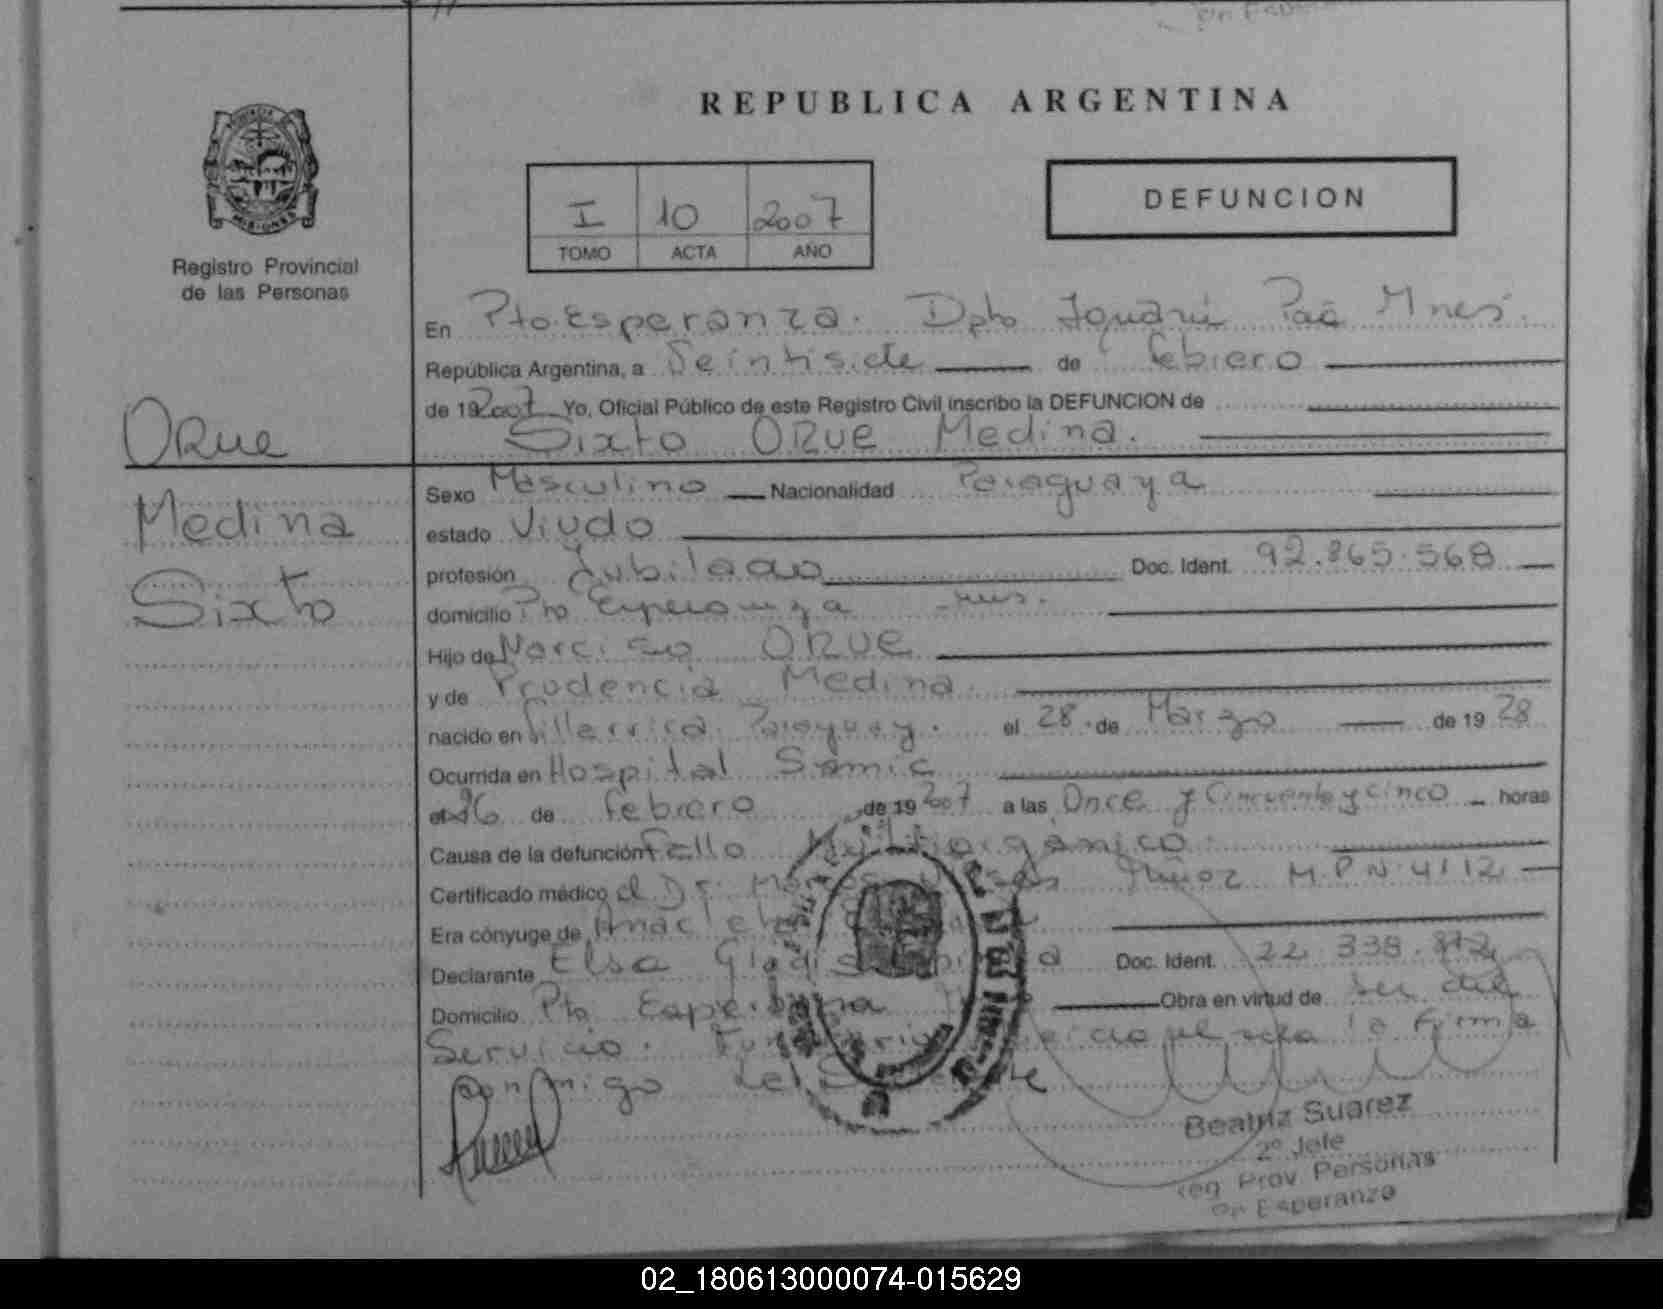 REPUBLICA ARGENTINA
DEFUNCION
I 10 2007
TOMO ACTA AÑO
Registro Provincial
de las Personas
En Pto. Esperanza. Dpto Iguazú
República Argentina, a Veintisiete de febrero
de 19 2007 Yo, Oficial Público de este Registro Civil inscribo la DEFUNCION de
Sixto ORUE Medina.
ORUE
Medina
Sixto
Sexo Masculino Nacionalidad Paraguaya
estado Viudo
profesión Jubilado Doc. Ident. 92.865.568
domicilio Pto Esperanza Mnes.
Hijo de Narciso ORUE
y de Prudencia Medina
nacido en Villarrica Paraguay. el 28 de Marzo de 19 28
Ocurrida en Hospital Samic
el 26 de febrero de 19 2007 a las Once y Cincuenta y cinco horas
Causa de la defunción Fallo Multiorganico
Certificado médico el Dr. Muñoz M.P.Nº 4112
Era cónyuge de Anacleta
Declarante Elsa Gladis Doc. Ident. 22.338.812
Domicilio Pto Esperanza Obra en virtud de ser del
Servicio la firma
conmigo
Beatriz Suarez
2º Jefe
Reg Prov Personas
Esperanza
02_180613000074-015629